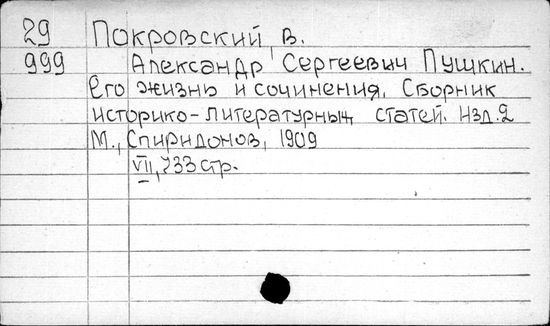 29 Покровский, В.
999 Александр Сергеевич Пушкин.
Его жизнь и сочинения. Сборник
историко-литературных статей. Изд.2
М., Спиридонов, 1909
VII, 733 стр.